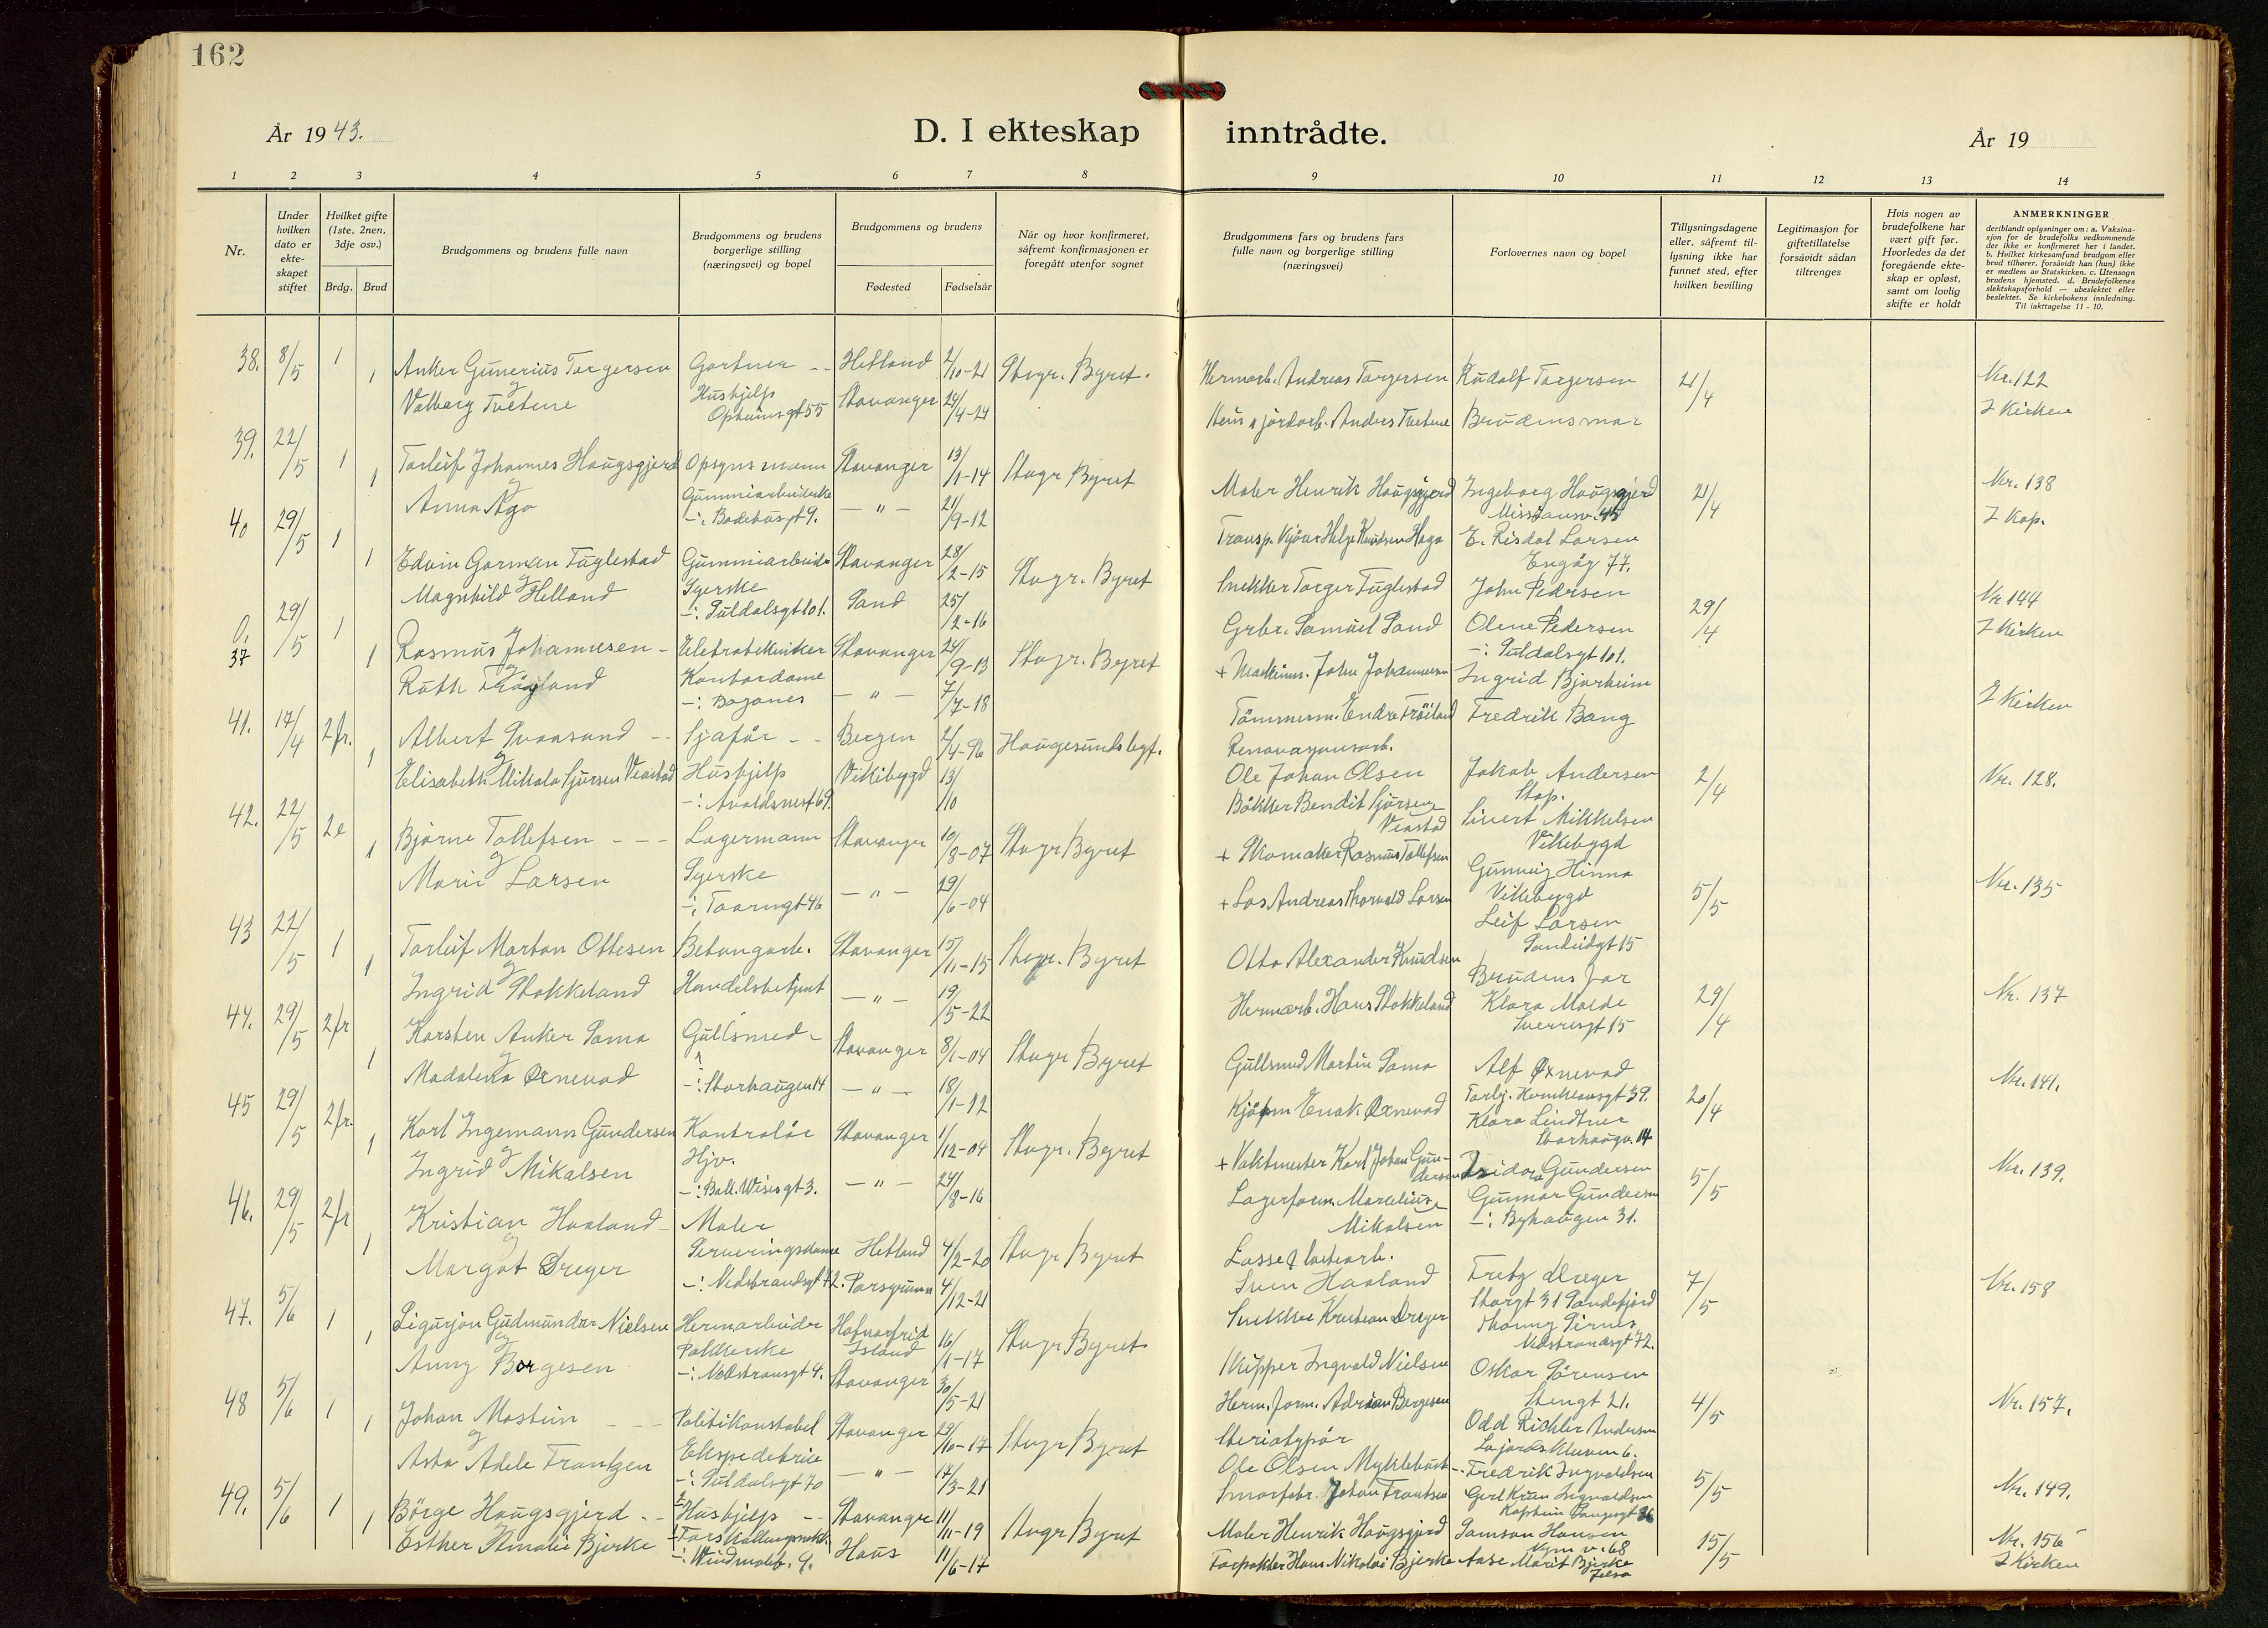 162
År 1943.
D. I ekteskap inntrådte.
År 19
1 2 3 4 5 6 7 8 9 10 11 12 13 14
Nr.
Under hvilken dato er ekte-skapet stiftet
Hvilket gifte (1ste, 2nen, 3dje osv.)
Brdg. Brud
Brudgommens og brudens fulle navn
Brudgommens og brudens borgerlige stilling (næringsvei) og bopel
Brudgommens og brudens
Fødested
Fødselsår
Når og hvor konfirmeret, såfremt konfirmasjonen er foregått utenfor sognet
Brudgommens fars og brudens fars fulle navn og borgerlige stilling (næringsvei)
Forlovernes navn og bopel
Tillysningsdagene eller, såfremt til-lysning ikke har funnet sted, efter hvilken bevilling
Legitimasjon for giftetillatelse forsåvidt sådan tiltrenges
Hvis nogen av brudefolkene har vært gift før. Hvorledes da det foregående ekte-skap er opløst, samt om lovlig skifte er holdt
ANMERKNINGER
deriblandt oplysninger om: a. Vaksina-sjon for de brudefolks vedkommende der ikke er konfirmeret her i landet. b. Hvilket kirkesamfund brudgom eller brud tilhører, forsåvidt han (hun) ikke er medlem av Statskirken. c. Utensogn brudens hjemsted. d. Brudefolkenes slektskapsforhold — ubeslektet eller beslektet. Se kirkebokens innledning. Til iakttagelse 11 - 10.
38. 8/5 1 Anker Gunerius Torgersen Gartner -- Hetland 2/10-21 Stvgr. Byret. Hermarb. Andreas Torgersen Rudolf Torgersen 21/4 Nr. 122
og
1 Valborg Tvetene Hushjelp Stavanger 24/4-24 Anders Tvetene Brudens mor I Kirken
Opheimsgt 55
39. 22/5 1 Torleif Johannes Haugsgjerd Opsynsmann Stavanger 13/1-14 Stvgr Byret Maler Henrik Haugsgjerd Ingeborg Haugsgjerd 21/4 Nr. 138
og
1 Anna Aga Gummiarbeiderske — " — 21/9-12 Helge Knutsen Haga Missionsv. 45 I Kap.
-: Badehusgt 9. E. Risdal Larsen
Engøy 77.
40 29/5 1 Edvin Gorman Fuglestad Gummiarbeider Stavanger 28/2-15 Stvgr. Byret Snekker Torger Fuglestad John Pedersen 29/4 Nr 144
og
1 Magnhild Helland Syerske Sand 25/2-16 Grbr. Samuel Sand Olene Pedersen I Kirken
-: Suldalsgt 101. -: Suldalsgt 101.
0. 37 29/5 1 Rasmus Johannesen - Eletrotekniker Stavanger 24/9-13 Stvgr. Byret + Maskinm. John Johannesen Ingrid Bjerheim I Kirken
og
1 Ruth Frøyland Kontordame — " — 7/7-18 Tømmerm. Endre Frøiland Fredrik Bang
-: Baganes
41. 17/4 2 fr. Albert Svansund -- Sjåfør -- Bergen 2/4-96 Haugesunds bygf. Renovasjonsarb. Jakob Andersen 2/4 Nr. 128.
Ole Johan Olsen Stap.
og
1 Elisabeth Mikala Sjursen Veastad Hushjelp Vikebygd 13/10 Bøkker Bendit Sjursen Veastad Sivert Mikkelsen
-: Avaldsnesgt 69. Vikebygd
42. 22/5 2e Bjarne Tollefsen --- Lagermann Stavanger 10/8-07 Stvgr Byret + Skomaker Rasmus Tollefsen Gunvig Hinna 5/5 Nr. 135
Vikebygd
og
1 Marie Larsen Syerske — " — 29/6-04 + Los Andreas Thorvald Larsen Leif Larsen
-: Taarngt 46 Sandeidgt 15
43 22/5 1 Torleif Morton Ottesen Betongarb. Stavanger 15/11-15 Stvgr. Byret Otto Alexander Knudsen Brudens far 29/4 Nr. 137
og
1 Ingrid Stokkeland Handelsbetjent — " — 19/5-22 Hermarb. Hans Stokkeland Klara Molde
Sverresgt 15
44. 29/5 2 fr Karsten Anker Sama Gullsmed - Stavanger 8/1-04 Stvgr Byret Gullsmed Martin Sama Alf Øxnevad 20/4 Nr. 141.
og
1 Madalena Øxnevad -: Storhaugen 14 — " — 18/1-12 Kjøpm Enok Øxnevad Klara Lindtner
Storhaugv. 14
45 29/5 2 fr. Karl Ingemann Gundersen Kontrolør Stavanger 1/12-04 Stvgr. Byret + Vaktmester Karl Johan Gundersen Isidor Gundersen 5/5 Nr. 139.
og
1 Ingrid Mikalsen Hjv. — " — 24/8-16 Lagerform. Marelius Mikalsen Gunnar Gundersen
-: Ball. Wisesgt 3. -: Byhaugen 31.
46. 29/5 2 fr Kristian Haaland - Maler Hetland 4/2-20 Stvgr Byret Losse & lastearb. Fretz Dreger 7/5 Nr. 158
Sven Haaland Storgt 31 Sandefjord
og
1 Margot Dreyer Serveringsdame Porsgrunn 4/12-21 Snekker Kristian Dreyer
-: Nedstrandsgt 72. Nedstrandsgt 72.
47. 5/6 1 Sigurjon Gudmundur Nielsen Hermarbeider Hafnarfrid Island 16/1-17 Stvgr Byret Skipper Ingvald Nielsen Oskar Sørensen 4/5 Nr. 157.
Stengt 21.
og
1 Anny Borgesen Pakkerske Stavanger 30/5-21 Herm. form. Adrian Borgesen Odd Richter Andersen
-: Nedstrandsgt 4.
48 5/6 1 Johan Mostein --- Politikonstabel Stavanger 29/10-17 Stvgr Byret Steriotypør Fredrik Ingvaldsen 5/5 Nr. 149.
Ole Olsen Myklebust
og
1 Asta Adele Frantzen Ekspeditrice — " — 17/3-21 Smørfabr. Johan Frantzen
-: Suldalsgt 70
49. 5/6 1 Børge Haugsgjerd -- Stavanger 11/11-19 Stvgr Byret Maler Henrik Haugsgjerd Samson Hansen 15/5 Nr. 156
1 Esther Amalie Bjerke Hushjelp Haus 11/6-17 Forpakter Hans Nikolai Bjerke Aase Marit Bjerke I Kirken
-: Windmøleb. 9. Jelsa